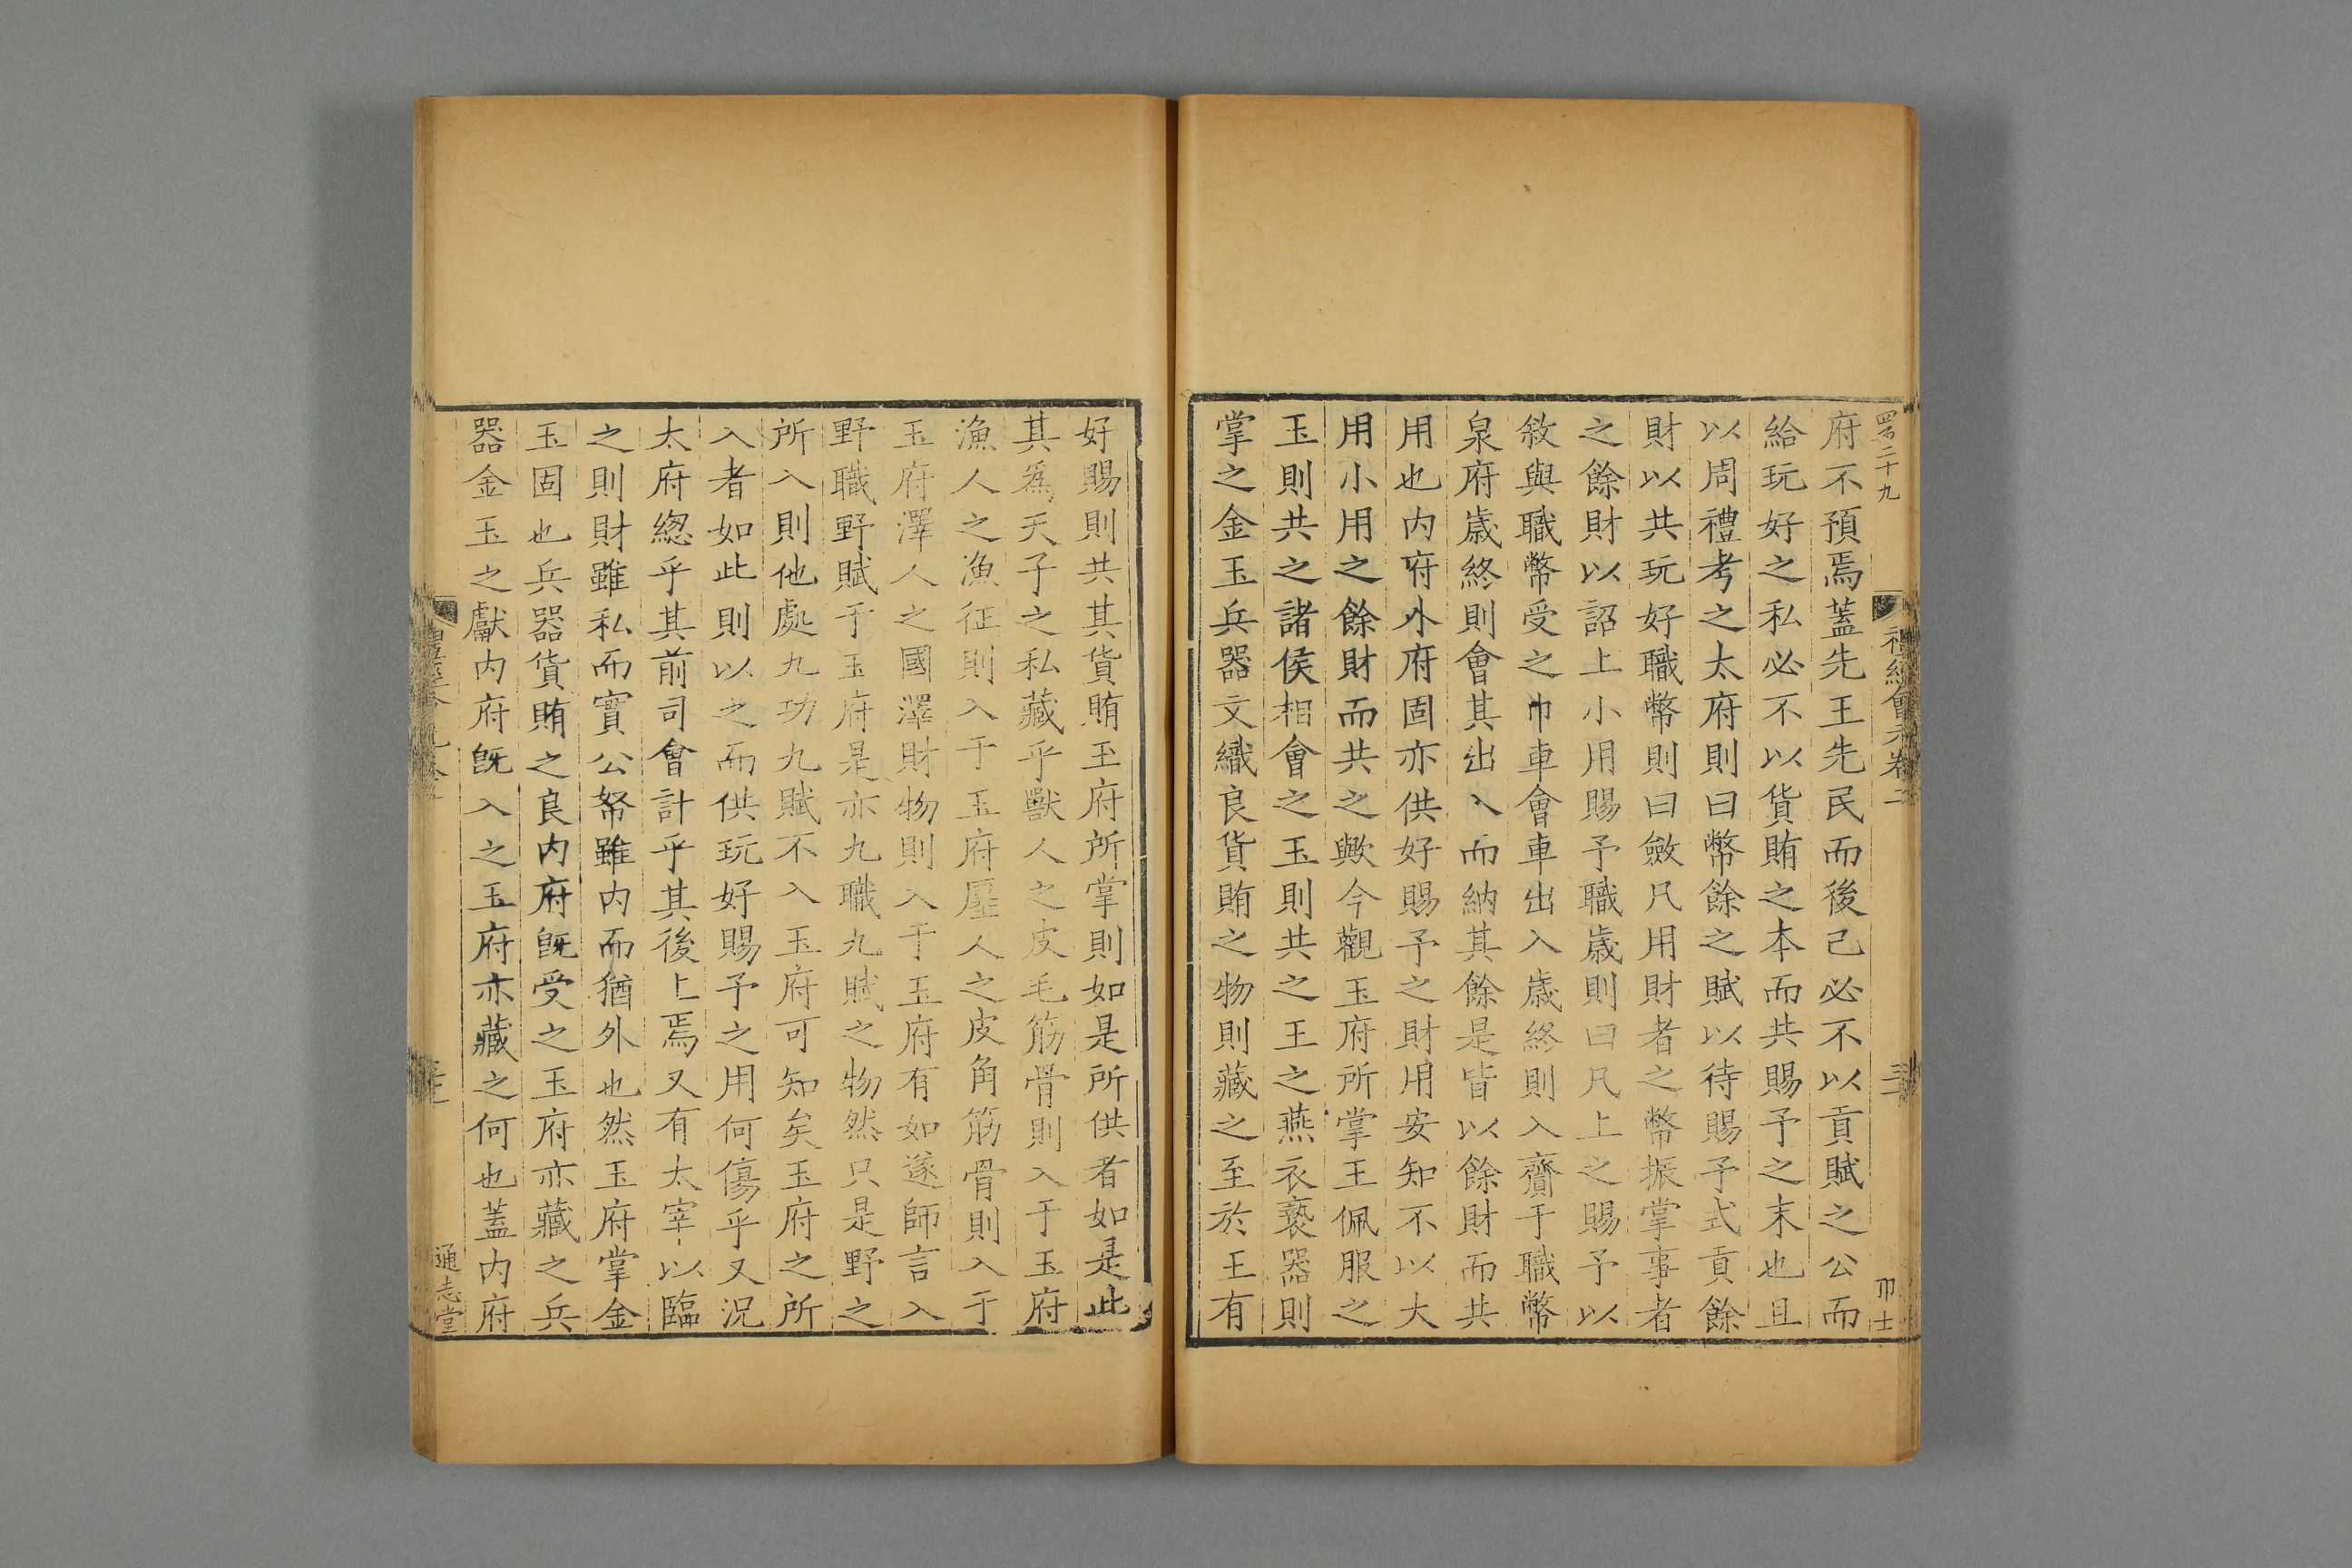 府不預焉蓋先王先民而後己必不以貢賦之公而
給玩好之私必不以貨賄之本而共賜予之末也且
以周禮考之太府則曰幣餘之賦以待賜予式貢餘
財以共玩好職幣則曰斂凡用財者之幣振掌事者
之餘財以詔上小用賜予職歲則曰凡上之賜予以
敘與職幣受之巾車會車出入歲終則入齎于職幣
泉府歲終則會其出入而納其餘是皆以餘財而共
用也内府外府固亦供好賜予之財用安知不以大
用小用之餘財而共之歟今觀玉府所掌王佩服之
玉則共之諸侯相會之玉則共之王之燕衣褻器則
掌之金玉兵器文織良貨賄之物則藏之至於王有
好賜則共其貨賄玉府所掌則如是所供者如是此
其爲天子之私藏乎獸人之皮毛筋骨則入于玉府
漁人之漁征則入于玉府廛人之皮角筋骨則入于
玉府澤人之國澤財物則入于玉府有如遂師言入
野職野賦于玉府是亦九職九賦之物然只是野之
所入則他處九功九賦不入玉府可知矣玉府之所
入者如此則以之而供玩好賜予之用何傷乎又況
太府緫乎其前司會計乎其後上焉又有太宰以臨
之則財雖私而實公帑雖内而猶外也然玉府掌金
玉固也兵器貨賄之良内府旣受之玉府亦藏之兵
器金玉之獻内府旣入之玉府亦藏之何也蓋内府
通志堂